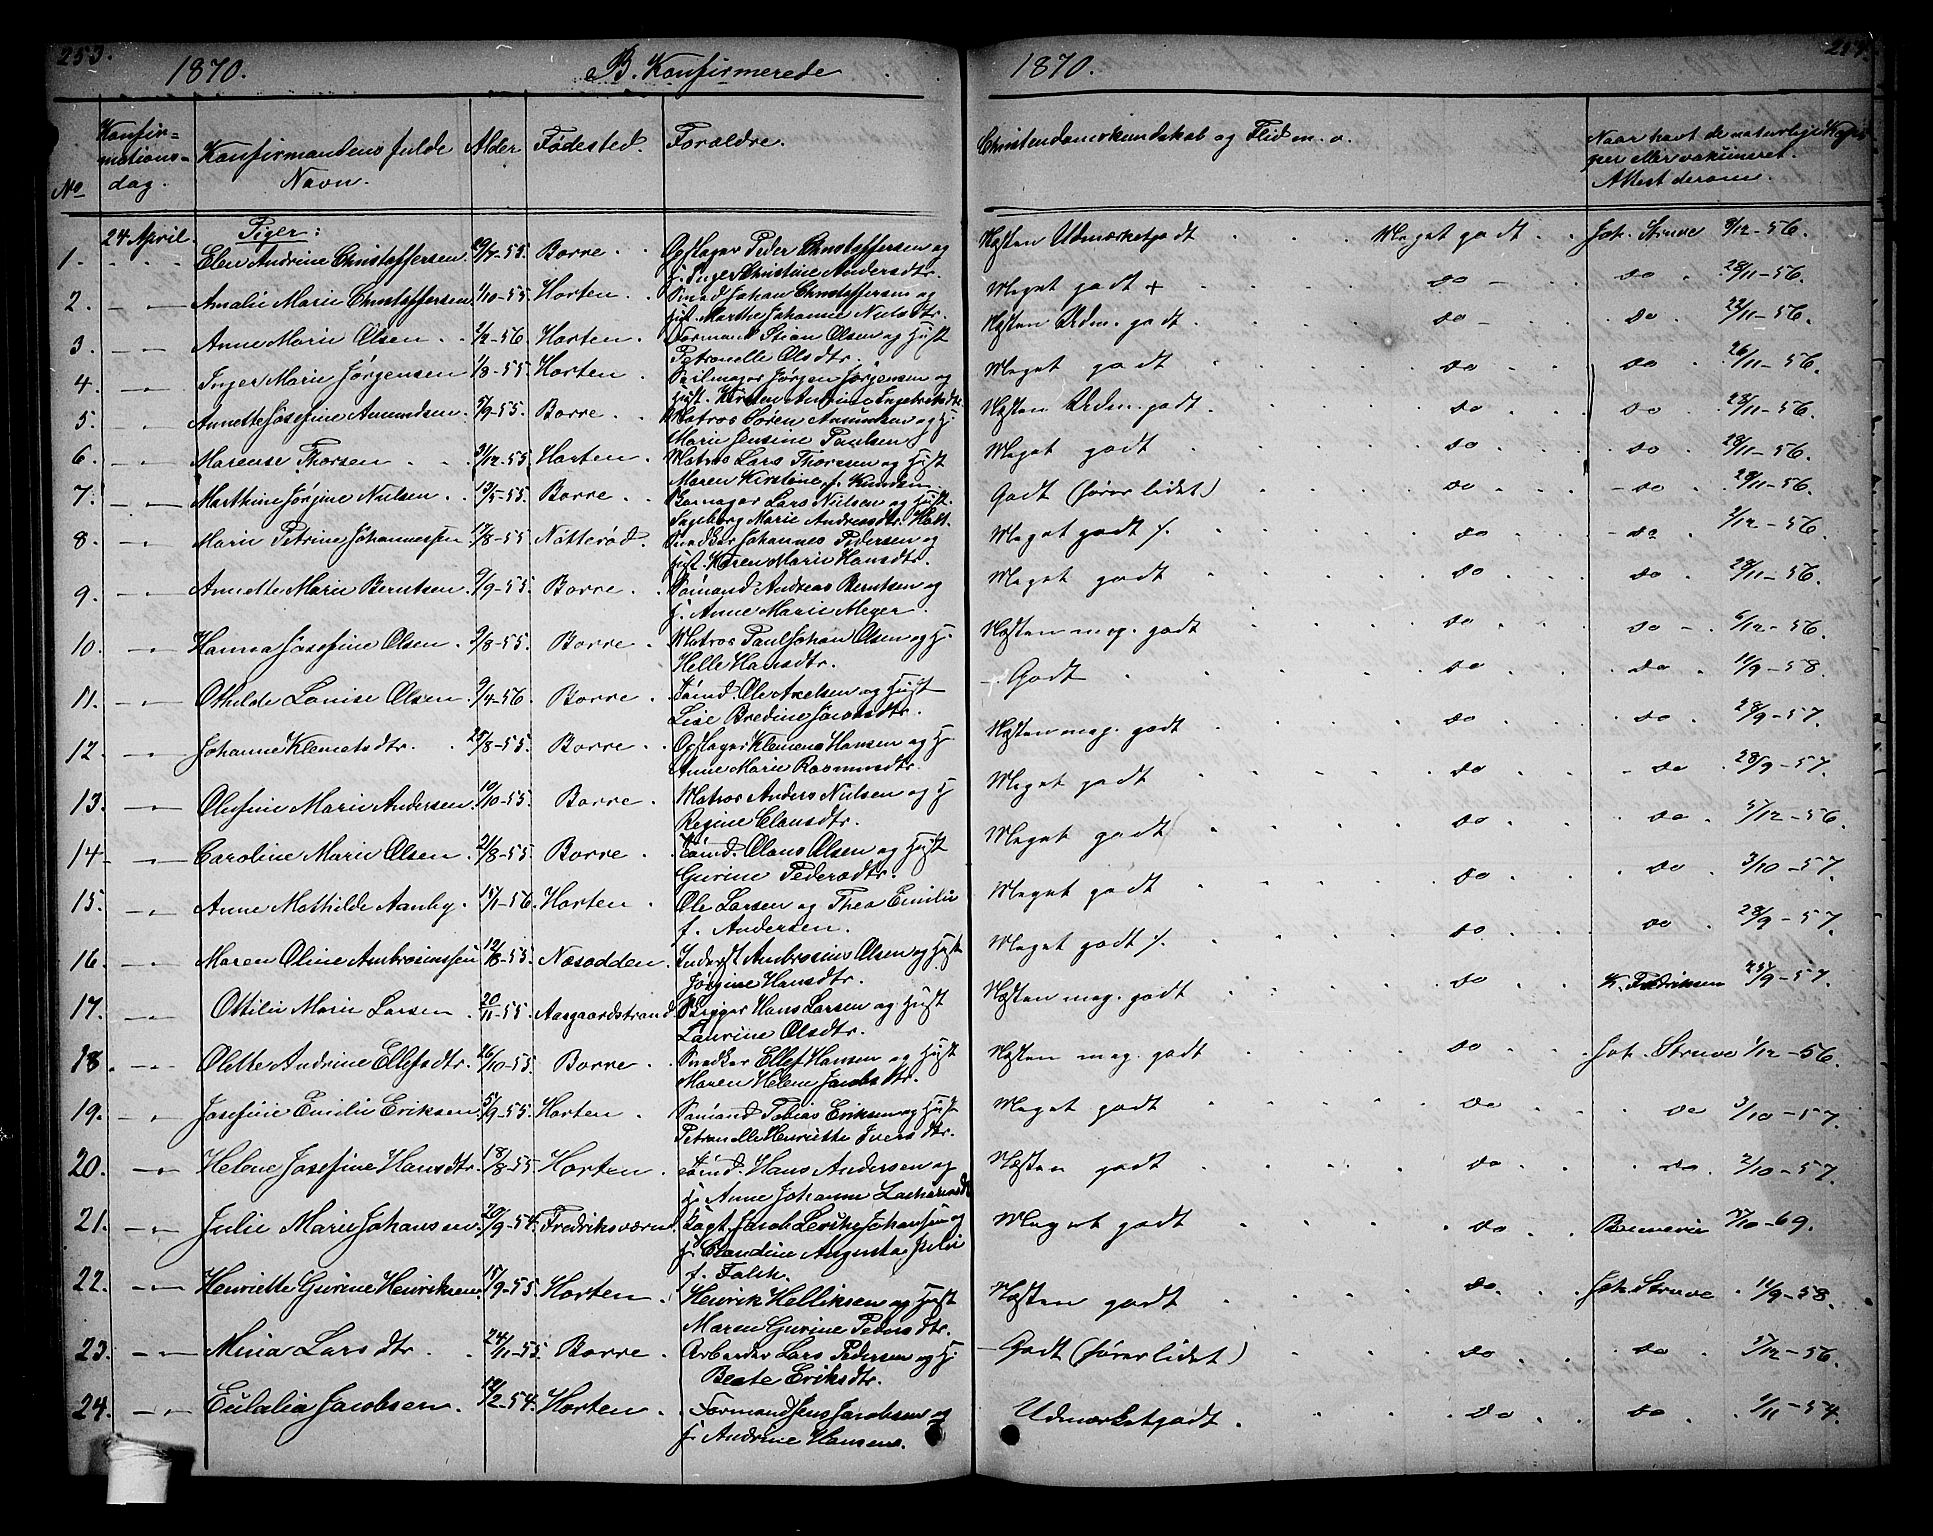 253.
1870. B. Konfirmerede
No
Konfir=
mations=
dag.
Konfirmandens fulde
Navn.
Alder
Fødested.
Forældre.
24 April. Piger:
1. Elen Andrine Christoffersen 29/7-55. Borre. Opslager Peder Christoffersen og
h. Inger Christine Andersdtr.
2. Amalie Marie Christoffersen 1/10-55. Horten. Smed Johan Christoffersen og
Hust. Marthe Johanne Nielsdtr.
3. Anne Marie Olsen. 2/2-56. Horten. Formand Stian Olsen og Hust
Petronelle Olsdtr.
4. Inger Marie Jørgensen 1/8-55. Horten. Seilmager Jørgen Jørgensen og
Hust. Kirsten Andrine
5. Annette Josefine Amundsen. 2/9-55. Borre. Matros Søren Amundsen og H.
Marie Jensine Paulsen
6. Marense Thorsen 9/12-55. Horten. Matros Lars Thoresen og Hust
Maren Kirstine f. Knudsen
7. Marthine Jørgine Nielsen. 13/5-55. Borre. Lars Nielsen og Hust.
Ingeborg Marie Andreasdtr. Holt.
8. Marie Petrine Johannessen 17/8-55 Nøtterød. Snedker Johannes Pedersen og
Hust. Karen Marie Hansdtr.
9. Annette Marie Berntsen. 9/9-55. Borre. Sømand Andreas Berntsen og
h. Anne Marie Meyer.
10. Hanna Josefine Olsen. 9/8-55. Borre. Matros Paul Johan Olsen og H.
Helle Hansdtr.
11. Othilde Louise Olsen. 9/4-56. Borre. Sømd. Ole Axelsen og Hust
Lise Bredine Jacobsdtr.
12. Johanne Klemetsdtr. 28/8-55. Borre. Opslager Klemens Hansen og H.
Anne Marie Rasmusdtr.
13. Olufine Marie Andersen. 10/10-55. Borre. Matros Anders Nielsen og H.
Regine Clausdtr.
14. Caroline Marie Olsen. 21/8-55. Borre. Sømd. Claus Olsen og Hust
Gurine Pedersdtr.
15. Anne Mathilde Aanby. 15/1-56. Horten. Ole Larsen og Thea Emilie
f. Andersen.
16. Maren Oline Ambrosiussen 12/8-55. Næsodden. Inderst Ambrosius Olsen og Hust
Jørgine Hansdtr.
17. Ottilie Marie Larsen. 20/11-55. Aasgaardstrand. Rigger Hans Larsen og Hust
Laurine Olsdtr.
18. Olette Andrine Ellefsdtr. 26/10-55. Borre. Snedker Ellef Hansen og Hust
Maren Helene Jacobsdtr.
19. Josefine Emilie Eriksen. 5/9-55. Horten. Sømand Tobias Eriksen og Hust
Petronelle Henriette Iversdtr.
20. Helene Josefine Hansdtr. 18/8-55 Horten. Sømd. Hans Andersen og
h. Anne Johanne
21. Julie Marie Johansen 20/9-54. Fredriksværn. Jacob Johansen og
h. Claudine Augusta Julie
f. Falck.
22. Henriette Gurine Henriksen. 15/9-55. Horten. Henrik Helliksen og Hust
Maren Gurine Pedersdtr.
23. Mina Larsdtr. 24/11-55. Borre. Arbeider Lars Pedersen og H.
Beate Eriksdtr.
24. Eulalia Jacobsen. 12/2-54. Horten. Formand Jens Jacobsen og
h. Andrine Hansen.
1870.
Christendomskundskab og Flid m. v.
Naar havt de naturlige Kop=
per eller vakcineret.
Attest derom.
Næsten Udmærketgodt Meget godt. Joh. Struve 8/12-56.
Meget godt + do do 28/11-56.
Næsten Udm. godt. do do 22/11-56.
Meget godt do do 26/11-56.
Næsten Udm. godt. do do 28/11-56.
Meget godt do do 28/11-56.
Godt (fører lidet) do do 29/11-56.
Meget godt ./. do do 3/12-56.
Meget godt do do 28/11-56.
Næsten meg. godt do do 6/12-56.
Godt do do 11/9-58.
Næsten meg. godt do do 28/9-57.
Meget godt do do 28/9-57.
Meget godt do do 5/12-56.
Meget godt do do 3/10-57.
Meget godt ./. do do 28/9-57.
Næsten meg. godt do K. Fredriksen 25/9-57.
Næsten meg. godt do Joh. Struve 1/12-56.
Meget godt do do 3/10-57.
Næsten godt do do 2/10-57.
Meget godt do 5/10-69.
Næsten godt do Joh. Struve 11/9-58.
Godt (fører lidet) do do 5/12-56.
Udmærketgodt. do do 1/11-54.